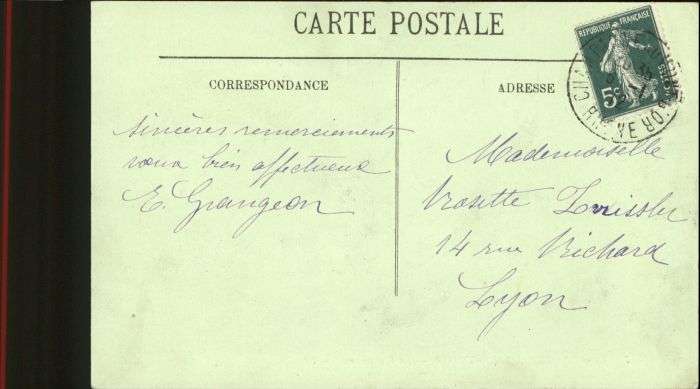 CARTE POSTALE
CORRESPONDANCE
ADRESSE
RÉPUBLIQUE FRANÇAISE
5c
sincères remerciements
vœux bien affectueux
E. Grangeon
Mademoiselle
14 rue Richard
Lyon